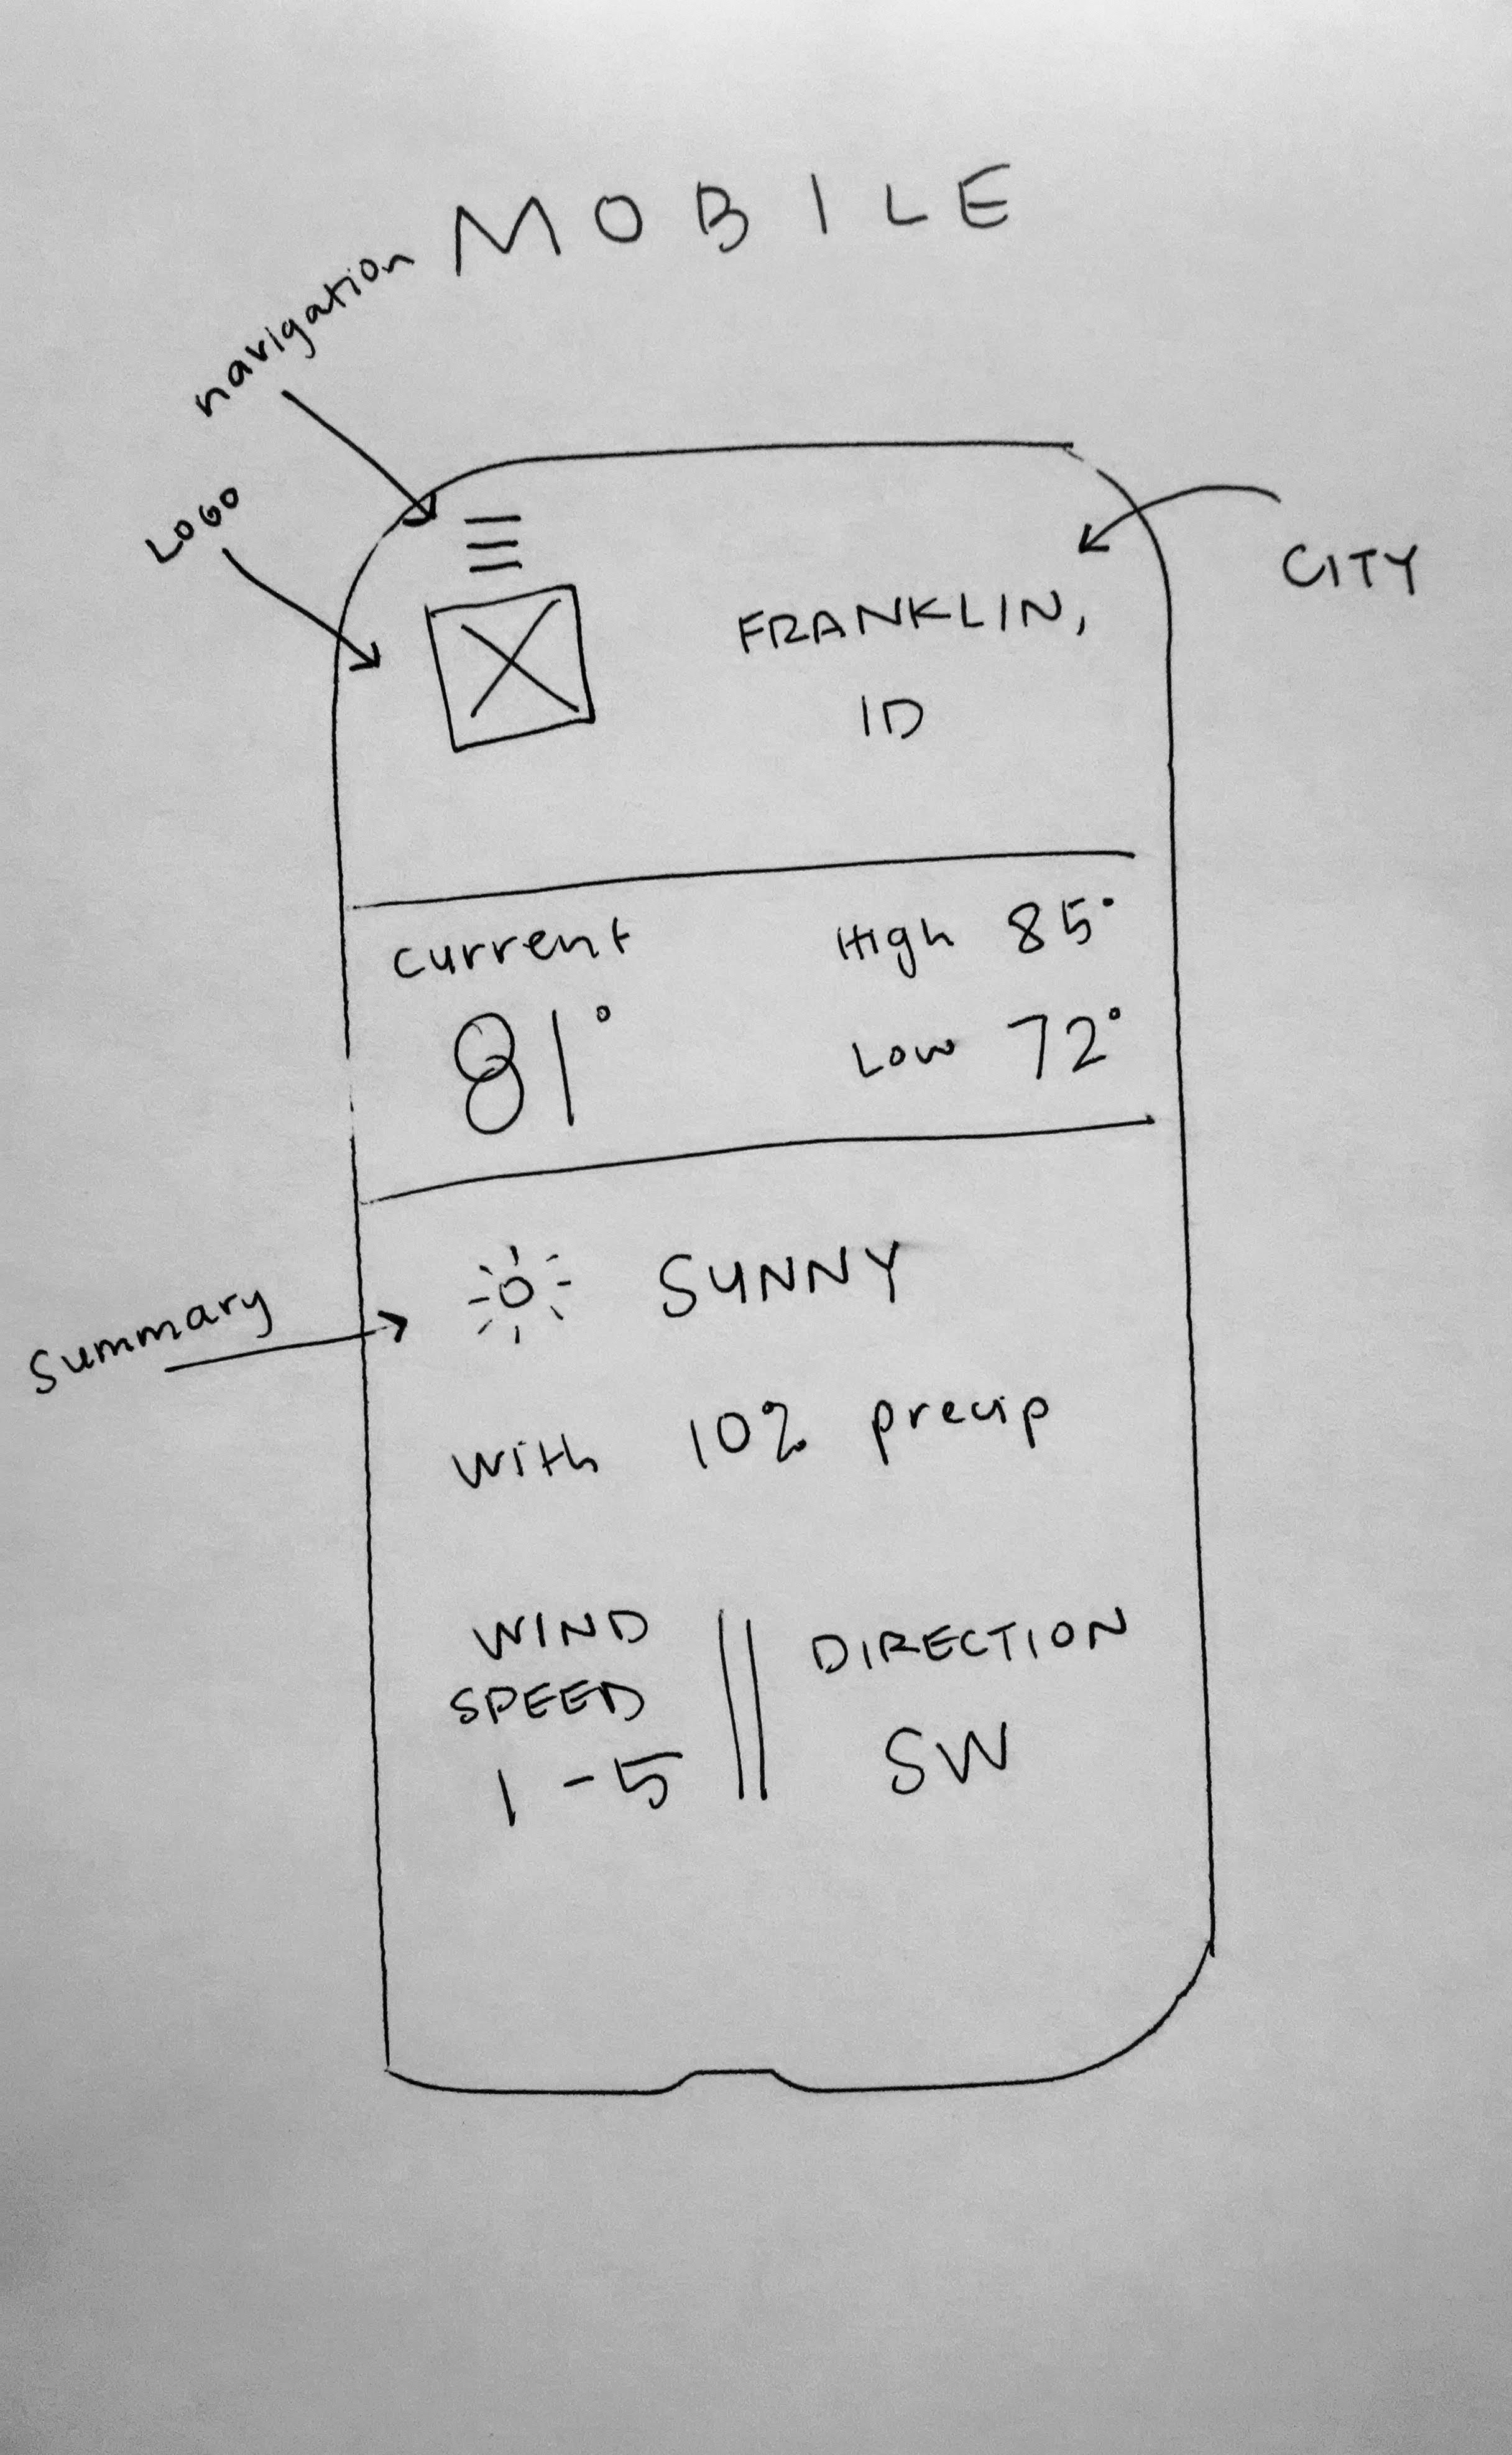 MOBILE
navigation
LOGO
CITY
FRANKLIN,
ID
Current
High 85°
81°
Low 72°
SUNNY
Summary
With 10% precip
WIND
SPEED
1-5
DIRECTION
SW